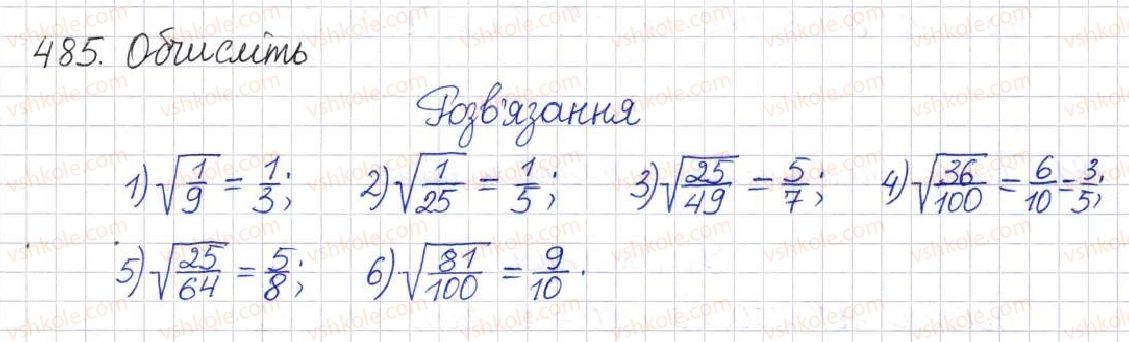 485. Обчисліть
Розв'язання
1) √(1/9) = 1/3; 2) √(1/25) = 1/5; 3) √(25/49) = 5/7; 4) √(36/100) = 6/10 = 3/5;
5) √(25/64) = 5/8; 6) √(81/100) = 9/10.